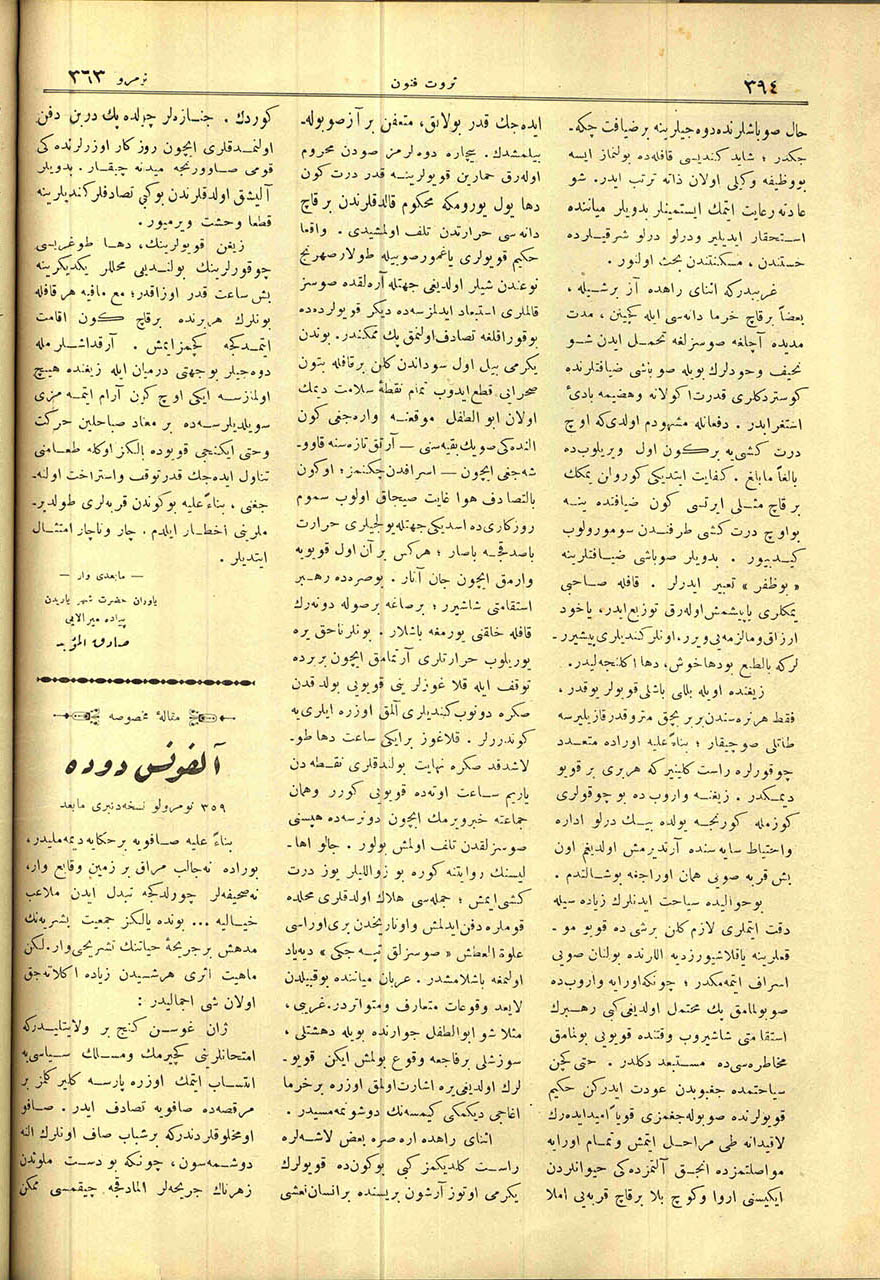 ٣٩٤
ثروت فنون
نومرو ٣٦٣
حال صوباشلرنده دوه‌جیلرینه بر ضیافت چكه-
جكدر ؛ شاید كندیسی قافله‌ده بولنماز ایسه
بووظیفه وكیلی اولان ذاته ترتب ایدر. شو
عادته رعایت ایتمك ایستمینلر بدویلر میاننده
استحقار ایدیلیر ودرلو درلو شرقیلرده
خستندن ، مسكنتندن بحث اولنور .
غریبدركه اثنای راهده آز برشیله ،
بعضاً برقاچ خرما دانه‌سی ایله كچینن ، مدت
مدیده آچلغه صوسزلغه تحمل ایدن شو
نحیف وجودلرك بویله صوباشی ضیافتلرنده
كوستردكلری قدرت اكولانه وهضمیه بادئ
استغرابدر . دفعاتله مشهودم اولدی‌كه اوچ
درت كشی‌یه بركون اول ویریلوب‌ده
بالغاً مابلغ . كفایت ایتدیكی كورولن یمكك
برقاچ مثلی ایرتسی كون ضیافتده ینه
بواوچ درت كشی طرفندن سومورولوب
كیدییور . بدویلر صوباشی ضیافتلرینه
« بوظفر » تعبیر ایدرلر . قافله صاحبی
یمكلری یاپیشمش اوله‌رق توزیع ایدر، یاخود
ارزاق ومالزمه‌یی ویرر. اونلر كندیلری پیشیرر-
لركه بالطبع بودها خوش ، دها اكلنجه‌لیدر.
زیغنده اویله بللی باشلی قویولر یوقدر ،
فقط هر نره‌سندن بر بچق مترو قدر قازیلیرسه
طاتلی صو چیقار ؛ بناءً علیه اوراده متعدد
چوقورلره راست كلینیر كه هربری بر قویو
دیمكدر . زیغنه واروب ده بو چوقولری
كوزمله كورنجه یولده بیك درلو اداره
واحتیاط سایه‌سنده آرتدیرمش اولدیغم اون
بش قربه صویی همان اوراجغه بوشالتدم .
بو حوالیده سیاحت ایدنلرك زیاده سیله
دقت ایتملری لازم كلن برشی ده قویو مو-
قعلرینه یاقلاشیورزدیه اللرنده بولنان صویی
اسراف ایتمه‌مكدر ؛ چونكه اورایه واروب ده
صوبولمامق پك محتمل اولدیغی كبی رهبرك
استقامتی شاشیروب وقتنده قویویی بولمامق
مخاطره‌سی ده مستبعد دكلدر . حتی كچن
سیاحتمده جغبوبدن عودت ایدركن حكیم
قویولرنده صوبوله‌جغمزی قویاً امیدایده‌رك
لاقیدانه طی مراحل ایتمش وتمام اورایه
مواصلتمزده انجق آلتمزده‌كی حیوانلردن
ایكیسنی اروا وكوچ بلا برقاچ قربه‌یی املا
ایده‌جك قدر بولانق، متعفن بر آز صوبوله-
بیلمشدك. بیچاره دوه‌لرمز صودن محروم
اوله‌رق حمارین قویولرینه قدر درت كون
دها یول یورومكه محكوم قالدقلرندن برقاچ
دانه‌سی حرارتدن تلف اولمشیدی . واقعا
حكیم قویولری یاغمورصوییله طولار صهرنج
نوعندن شیلر اولدیغی جهتله آره‌لقده صوسز
قالملری استبعاد ایدلمزسه‌ده دیكر قویولرده‌ده
بوقوراقلغه تصادف اولنمق پك ممكندر. بوندن
یكرمی ییل اول سوداندن كلن برقافله بتون
صحرایی قطع ایدوب تمام نقطهٔ سلامت دیمك
اولان ابو الطفل موقعنه واره‌جغی كون
النده‌كی صویك بقیه‌سنی — آرتق تازه‌سنه قاوو-
شه‌جغی ایچون — اسرافدن چكنمز ؛ اوكون
بالتصادف هوا غایت صیجاق اولوب سموم
روزكاری‌ده اسدیكی جهتله یولجیلری حرارت
باصدقجه باصار ؛ هركس بر آن اول قویویه
وارمق ایچون جان آتار . بوصره‌ده رهبر
استقامتی شاشیرر ؛ برصاغه برصوله دونه‌رك
قافله خلقنی یورمغه باشلار . بونلر ناحق یره
یوریلوب حرارتلری آرتمامق ایچون بریرده
توقف ایله قلاغوزلرینی قویویی بولدقدن
صكره دونوب كندیلری آلمق اوزره ایلری‌یه
كوندررلر . قلاغوز برایكی ساعت دها طو-
لاشدقد صكره نهایت بولندقلری نقطه‌دن
یاریم ساعت اوته‌ده قویویی كورر وهمان
جماعته خبرویرمك ایچون دونرسه‌ده هپسنی
صوسزلقدن تلف اولمش بولور . جالو اها-
لیسنك روایتنه كوره بو زواللیلر یوز درت
كشی ایمش ؛ جمله‌سی هلاك اولدقلری محلده
قوملره دفن ایدلمش واوتاریخدن بری اوراسی
علوة العطش « صوسزلق تپه‌جكی » دیه‌یاد
اولنمغه باشلامشدر . عربان میاننده بوقبیلدن
لایعد وقوعات متعارف ومتواتردر. غریبی ،
مثلا شو ابو الطفل جوارنده بویله دهشتلی ،
سوزشلی برفاجعه وقوع بولمش ایكن قویو-
لرك اولدیغی یره اشارت اولمق اوزره برخرما
اغاجی دیكمكی كیمسه‌نك دوشونمه‌مسیدر .
اثنای راهده اره صره بعض لاشه‌لره
راست كلدیكمز كبی بوكون‌ده قویولرك
یكرمی اوتوز آرشون بریسنده برانسان نعشی
كوردك . جنازه‌لر چولده پك درین دفن
اولنمدقلری ایچون روزكار اوزرلرنده كی
قومی صاوورنجه میدنه چیقار. بدویلر
آلیشق اولدقلرندن بوكبی تصادفلر كندیلرینه
قطعا وحشت ویرمیور .
زیغن قویولرینك، دها طوغریسی
چوقورلرینك بولندیغی محللر یكدیكرینه
بش ساعت قدر اوزاقدر؛ مع مافیه هر قافله
بونلرك هربرنده برقاچ كون اقامت
ایتمدكجه كچمز ایمش . آرقداشلرمله
دوه‌جیلر بوجهتی درمیان ایله زیغنده هیچ
اولمزسه ایكی اوچ كون آرام ایتمه‌مزی
سویلدیلرسه‌ده بر معتاد صباحلین حركت
وحتی ایكنجی قویوده یالكز اوكله طعامنی
تناول ایده‌جك قدر توقف واستراحت اولنه-
جغنی ، بناءً علیه بوكوندن قربه‌لری طولدیر-
ملرینی اخطار ایلدم . چار وناچار امتثال
ایتدیلر .
— مابعدی وار —
یاوران حضرت شهریاریدن
پیاده میرالایی
صادق المؤید
مقالهٔ مخصوصه
آلفونس دوده
٣٥٩ نومرولو نسخه‌دنبری مابعد
بناءً علیه صافویه برحكایه دیمه‌ملیدر،
بوراده نه‌جالب مراق بر زمین وقایع وار،
نه‌صحیفه‌لر چورلدكجه تبدل ایدن ملاعب
خیالیه ... بونده یالكز جمعیت بشریه‌نك
مدهش برجریحهٔ حیاتنك تشریحی وار. لكن
ماهیت اثری هرشیدن زیاده اكلاته‌جق
اولان شی اجمالیدر :
ژان غوسن كنج بر ولایتلیدركه
امتحانلرینی كچیرمك ومسلك سیاسی‌یه
انتساب ایتمك اوزره پارسه كلیر كلمز بر
مرقصه‌ده صافویه تصادف ایدر . صافو
اومخلوقلردندركه برشباب صاف اونلرك النه
دوشمه‌سون، چونكه بو دست ملوثدن
زهرناك جریحه‌لر المادقجه چیقمسی ممكن